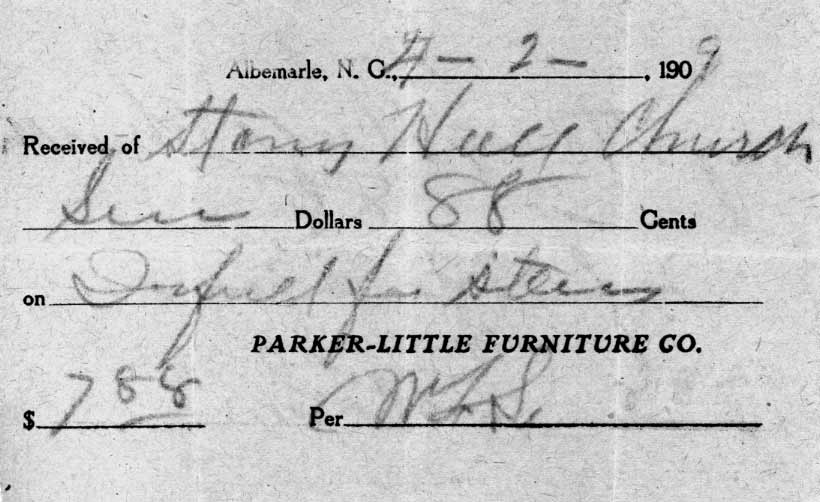 Albemarle, N. C., 4 - 2 - , 1909
Received of Stony Hill Church
Dollars 88 Cents
on In full for
PARKER-LITTLE FURNITURE CO.
$ 7 88 Per W L S.